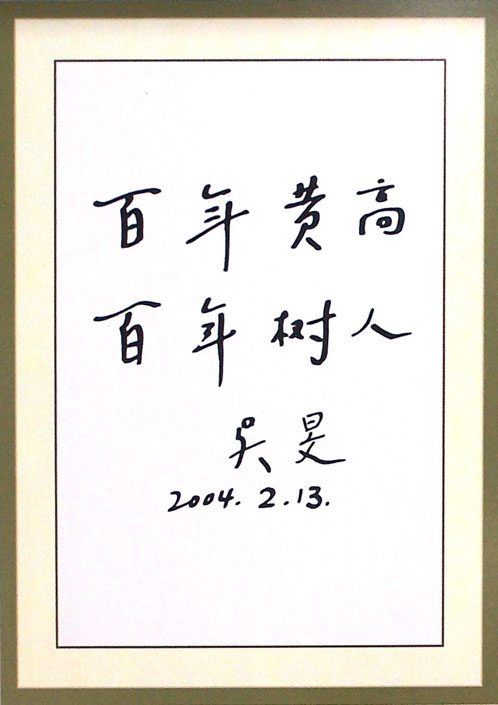 百年黄高
百年树人
吴旻
2004.2.13.